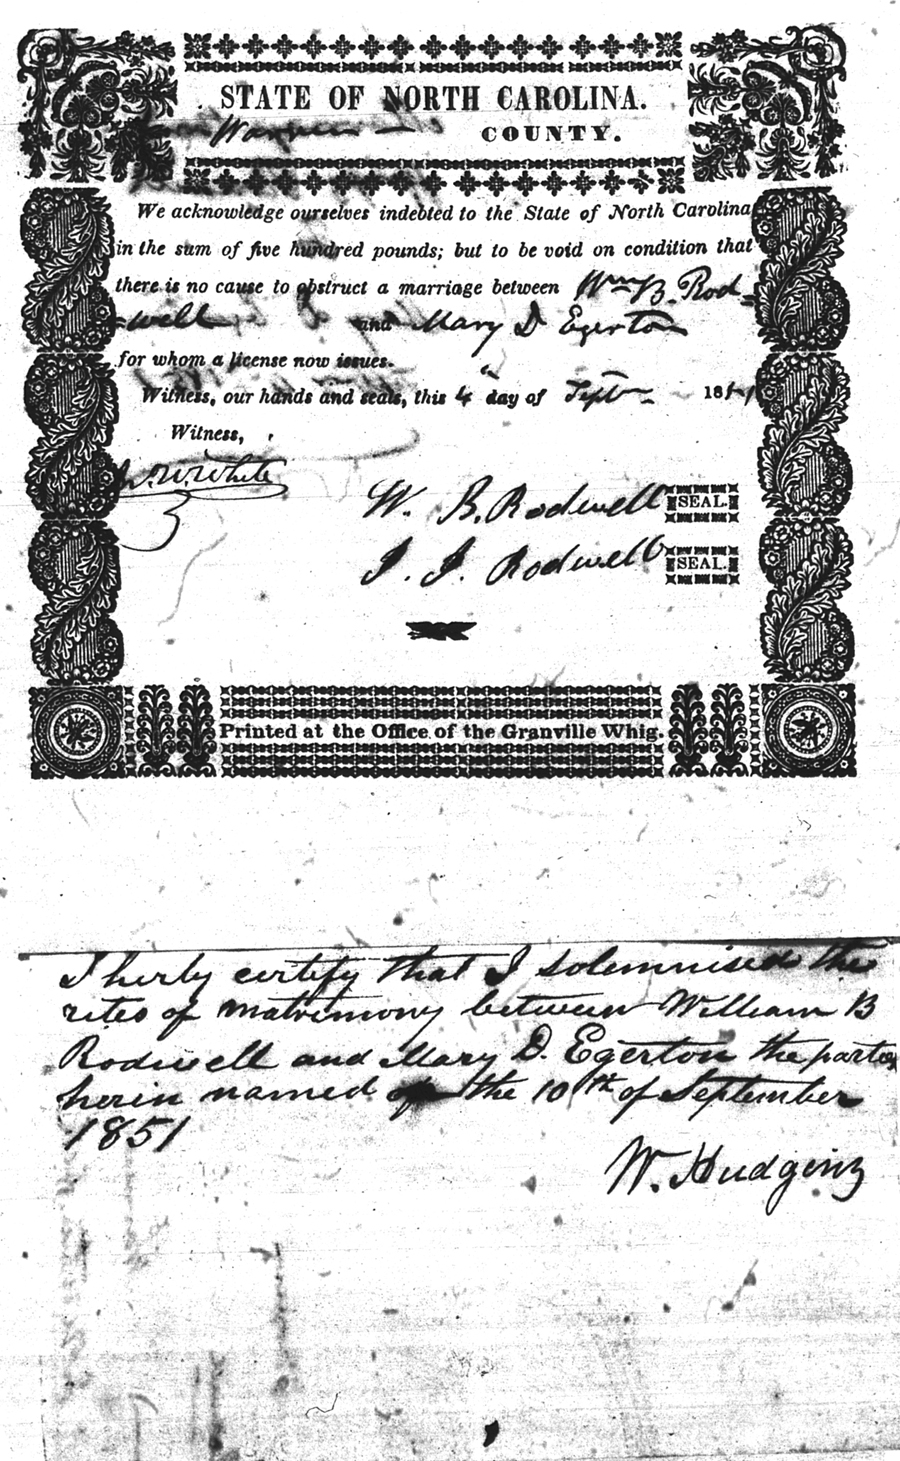 STATE OF NORTH CAROLINA.
Warren COUNTY.
We acknowledge ourselves indebted to the State of North Carolina
in the sum of five hundred pounds; but to be void on condition that
there is no cause to obstruct a marriage between Wm B. Rod=
=well and Mary D Egerton
for whom a license now issues.
Witness, our hands and seals, this 4 day of Sept 1851
Witness,
W. White
W. B. Rodwell SEAL.
J. J. Rodwell SEAL.
Printed at the Office of the Granville Whig.
I herby certify that I solemnised the
rites of matrimony between William B
Rodwell and Mary D. Egerton the parties
herin named the 10th of September
1851
W. Hudgins